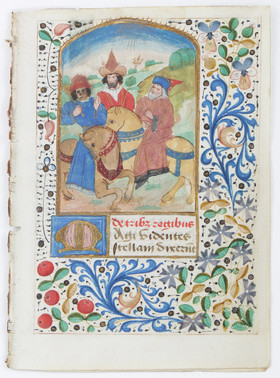 De tribz regibus
Magi videntes
stellam dixerūt